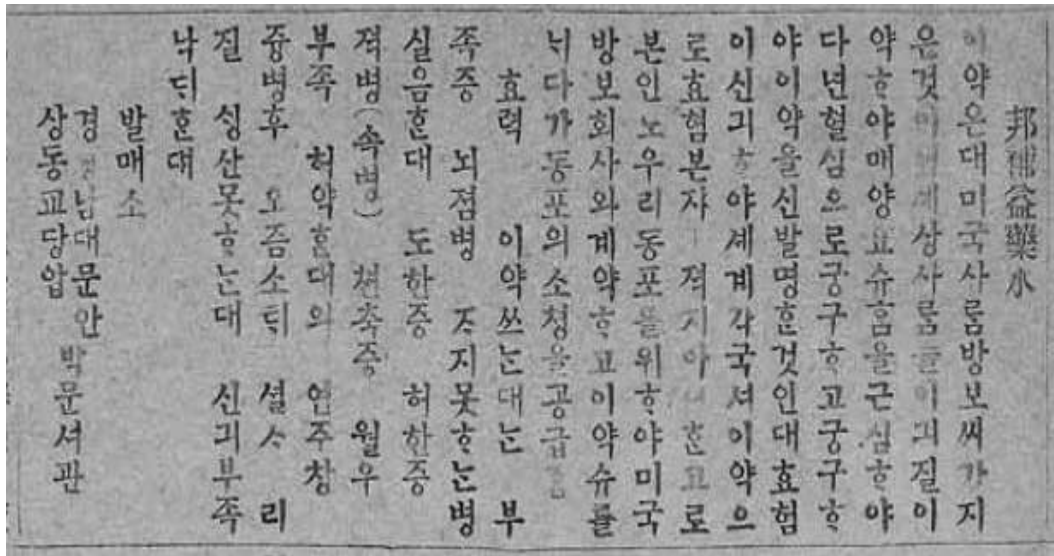 邦補益藥水
이약은대미국사ᄅᆞᆷ방보씨가지
은것이니세상사ᄅᆞᆷ들이긔질이
약ᄒᆞ야매양요슈ᄒᆞᆷ을근심ᄒᆞ야
다년혈심으로궁구ᄒᆞ고궁구ᄒᆞ
야이약을신발명ᄒᆞᆫ것인대효험
이신긔ᄒᆞ야셰계각국셔이약으
로효험본쟈ㅣ 젹지아니ᄒᆞᆫ고로
본인노우리동포를위ᄒᆞ야미국
방보회사와계약ᄒᆞ고이약슈를
닉다가동포의소청을공급ᄒᆞᆷ
효력 이약쓰ᄂᆞᆫ대ᄂᆞᆫ 부
족증 뇌졈병 ᄌᆞ지못ᄒᆞᄂᆞᆫ병
실음ᄒᆞᆫ대 도한증 허한증
젹병(속병) 월우
부족 허약ᄒᆞᆫ대의 연주창
즁병후 오즘소틱 셜ᄉᆞ 리
질 싱산못ᄒᆞᄂᆞᆫ대 신긔부족
낙틱ᄒᆞᆫ대
발매소
경 남대문안
상동교당압 박문셔관